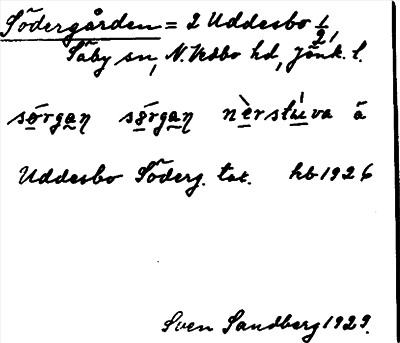 Södergården = 2 Uddesbo 1/2,
Säby sn, N. Vedbo hd, Jönk. l.
sórgaṇ sórgaṇ nèrstúva å
Uddesbo Söderg. tat. hb 1926
Sven Sandberg 1929.